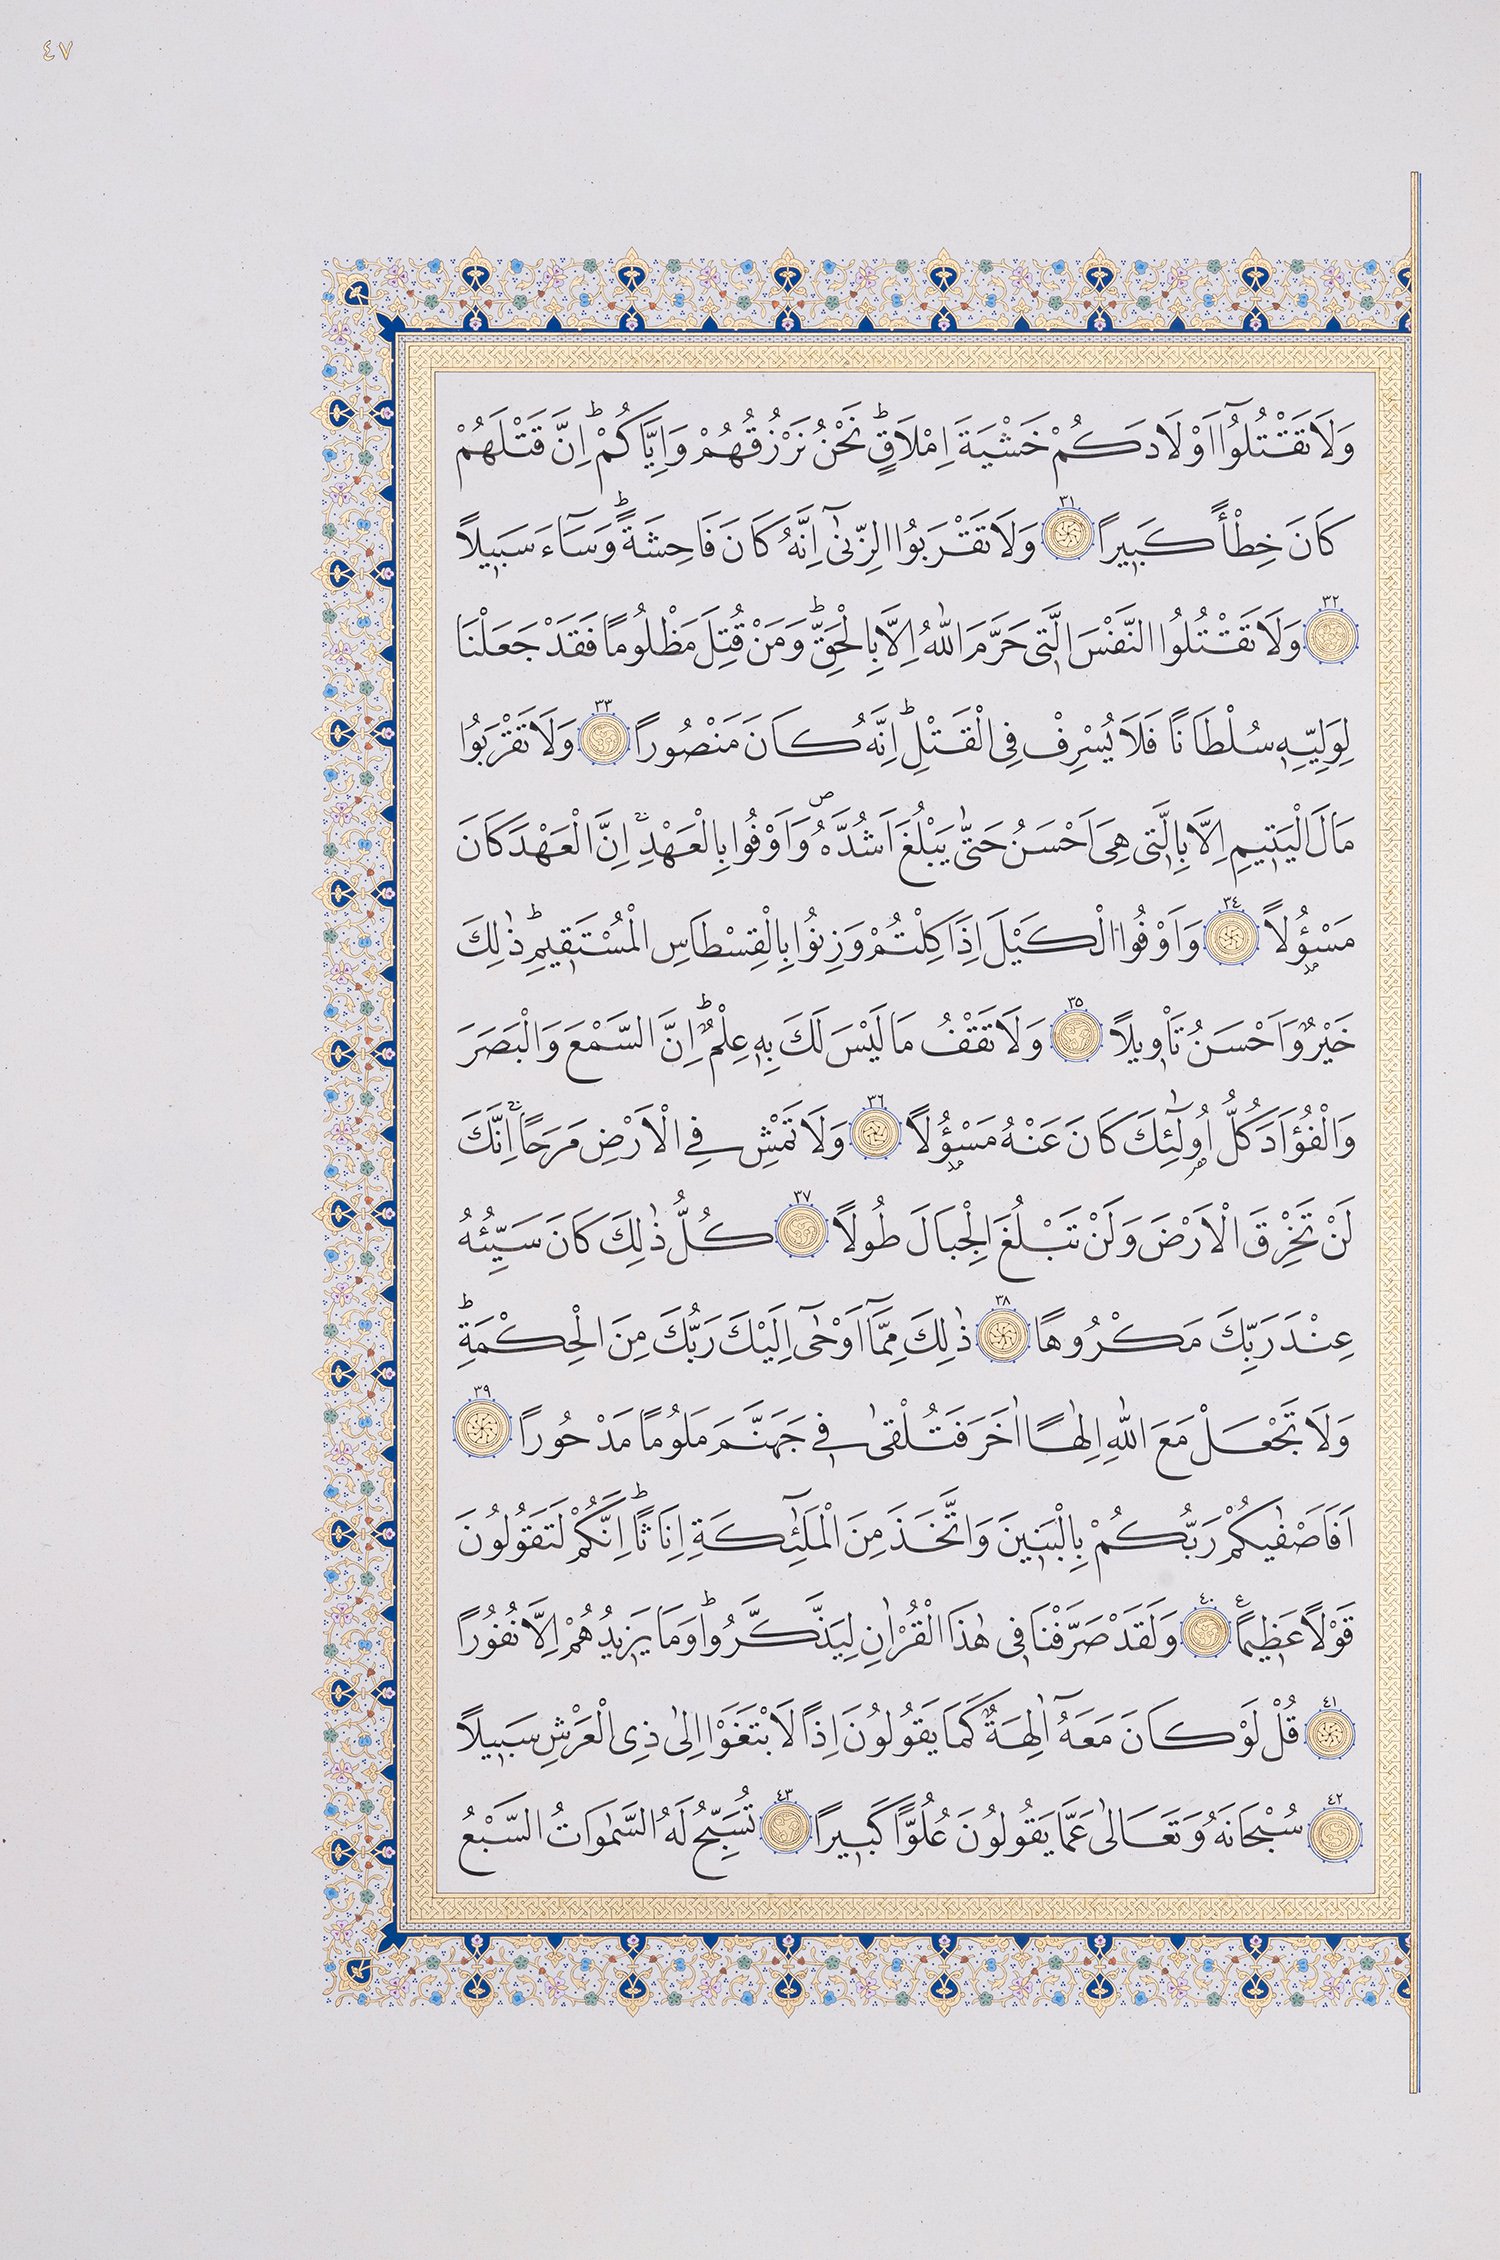 ٤٧
وَلَا تَقْتُلُوٓا اَوْلَادَكُمْ خَشْيَةَ اِمْلَاقٍؕ نَحْنُ نَرْزُقُهُمْ وَاِيَّاكُمْؕ اِنَّ قَتْلَهُمْ
كَانَ خِطْأً كَبٖيراً ٣١ وَلَا تَقْرَبُوا الزِّنٰىٓ اِنَّهُ كَانَ فَاحِشَةًؕ وَسَٓاءَ سَبٖيلاً
٣٢ وَلَا تَقْتُلُوا النَّفْسَ الَّتٖى حَرَّمَ اللّٰهُ اِلَّا بِالْحَقِّؕ وَمَنْ قُتِلَ مَظْلُوماً فَقَدْ جَعَلْنَا
لِوَلِيِّهٖ سُلْطَاناً فَلَا يُسْرِفْ فِى الْقَتْلِؕ اِنَّهُ كَانَ مَنْصُوراً ٣٣ وَلَا تَقْرَبُوا
مَالَ الْيَتٖيمِ اِلَّا بِالَّتٖى هِىَ اَحْسَنُ حَتّٰى يَبْلُغَ اَشُدَّهُࣕ وَاَوْفُوا بِالْعَهْدِۚ اِنَّ الْعَهْدَ كَانَ
مَسْؤُ۫لاً ٣٤ وَاَوْفُوا الْكَيْلَ اِذَا كِلْتُمْ وَزِنُوا بِالْقِسْطَاسِ الْمُسْتَقٖيمِؕ ذٰلِكَ
خَيْرٌ وَاَحْسَنُ تَأْوٖيلاً ٣٥ وَلَا تَقْفُ مَا لَيْسَ لَكَ بِهٖ عِلْمٌؕ اِنَّ السَّمْعَ وَالْبَصَرَ
وَالْفُؤَادَ كُلُّ اُو۬لٰٓئِكَ كَانَ عَنْهُ مَسْؤُ۫لاً ٣٦ وَلَا تَمْشِ فِى الْاَرْضِ مَرَحاًۚ اِنَّكَ
لَنْ تَخْرِقَ الْاَرْضَ وَلَنْ تَبْلُغَ الْجِبَالَ طُولاً ٣٧ كُلُّ ذٰلِكَ كَانَ سَيِّئُهُ
عِنْدَ رَبِّكَ مَكْرُوهاً ٣٨ ذٰلِكَ مِمَّٓا اَوْحٰٓى اِلَيْكَ رَبُّكَ مِنَ الْحِكْمَةِؕ
وَلَا تَجْعَلْ مَعَ اللّٰهِ اِلٰهاً اٰخَرَ فَتُلْقٰى فٖى جَهَنَّمَ مَلُوماً مَدْحُوراً ٣٩
اَفَاَصْفٰيكُمْ رَبُّكُمْ بِالْبَنٖينَ وَاتَّخَذَ مِنَ الْمَلٰٓئِكَةِ اِنَاثاًؕ اِنَّكُمْ لَتَقُولُونَ
قَوْلاً عَظٖيماًࣖ ٤٠ وَلَقَدْ صَرَّفْنَا فٖى هٰذَا الْقُرْاٰنِ لِيَذَّكَّرُواؕ وَمَا يَزٖيدُهُمْ اِلَّا نُفُوراً
٤١ قُلْ لَوْ كَانَ مَعَهُٓ اٰلِهَةٌ كَمَا يَقُولُونَ اِذاً لَابْتَغَوْا اِلٰى ذِى الْعَرْشِ سَبٖيلاً
٤٢ سُبْحَانَهُ وَتَعَالٰى عَمَّا يَقُولُونَ عُلُوًّا كَبٖيراً ٤٣ تُسَبِّحُ لَهُ السَّمٰوَاتُ السَّبْعُ